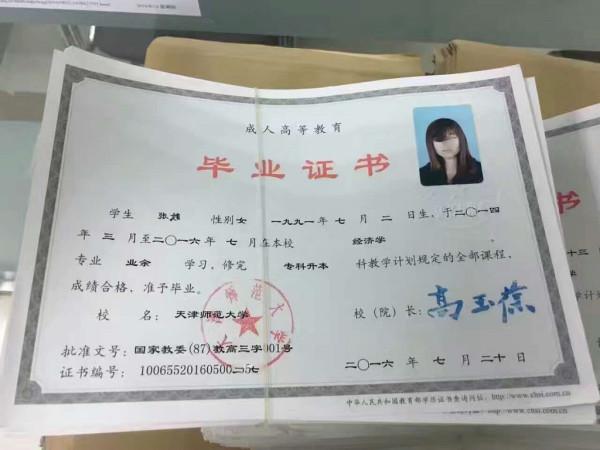 成人高等教育
毕业证书
学生 张雅 性别 女 一九九一年 七 月 二 日生，于二〇一四
年 三 月至二〇一六年 七 月在本校 经济学
专业 业余 学习，修完 专科升本 科教学计划规定的全部课程，
成绩合格，准予毕业。
校 名： 天津师范大学 校（院）长： 高玉葆
批准文号：国家教委(87)教高三字001号
证书编号： 10065520160500 二〇一六年 七 月 二十日
中华人民共和国教育部学历证书查询网址：http://www.chsi.com.cn